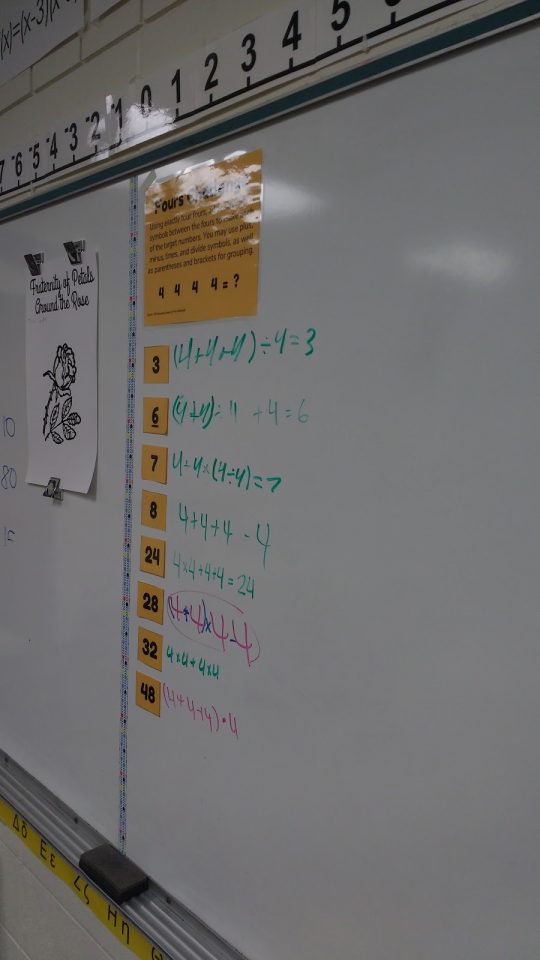 (x)=(x-3)(x
7 -6 -5 -4 -3 -2 -1 0 1 2 3 4 5
Fours
Using exactly four fours,
symbol between the fours to
of the target numbers. You may use plus,
minus, times, and divide symbols, as well
as parentheses and brackets for grouping.
4 4 4 4 = ?
Fraternity of Petals
Around the Rose
3 (4+4+4)÷4=3
6 (4+4)÷4 +4=6
7 (4÷4)=7
8 4+4+4-4
24 4×4+4+4=24
28 (4+4)×4-4
32 4×4+4×4
48 (4+4+4)•4
10
80
Δδ Εε Ζζ Ηη